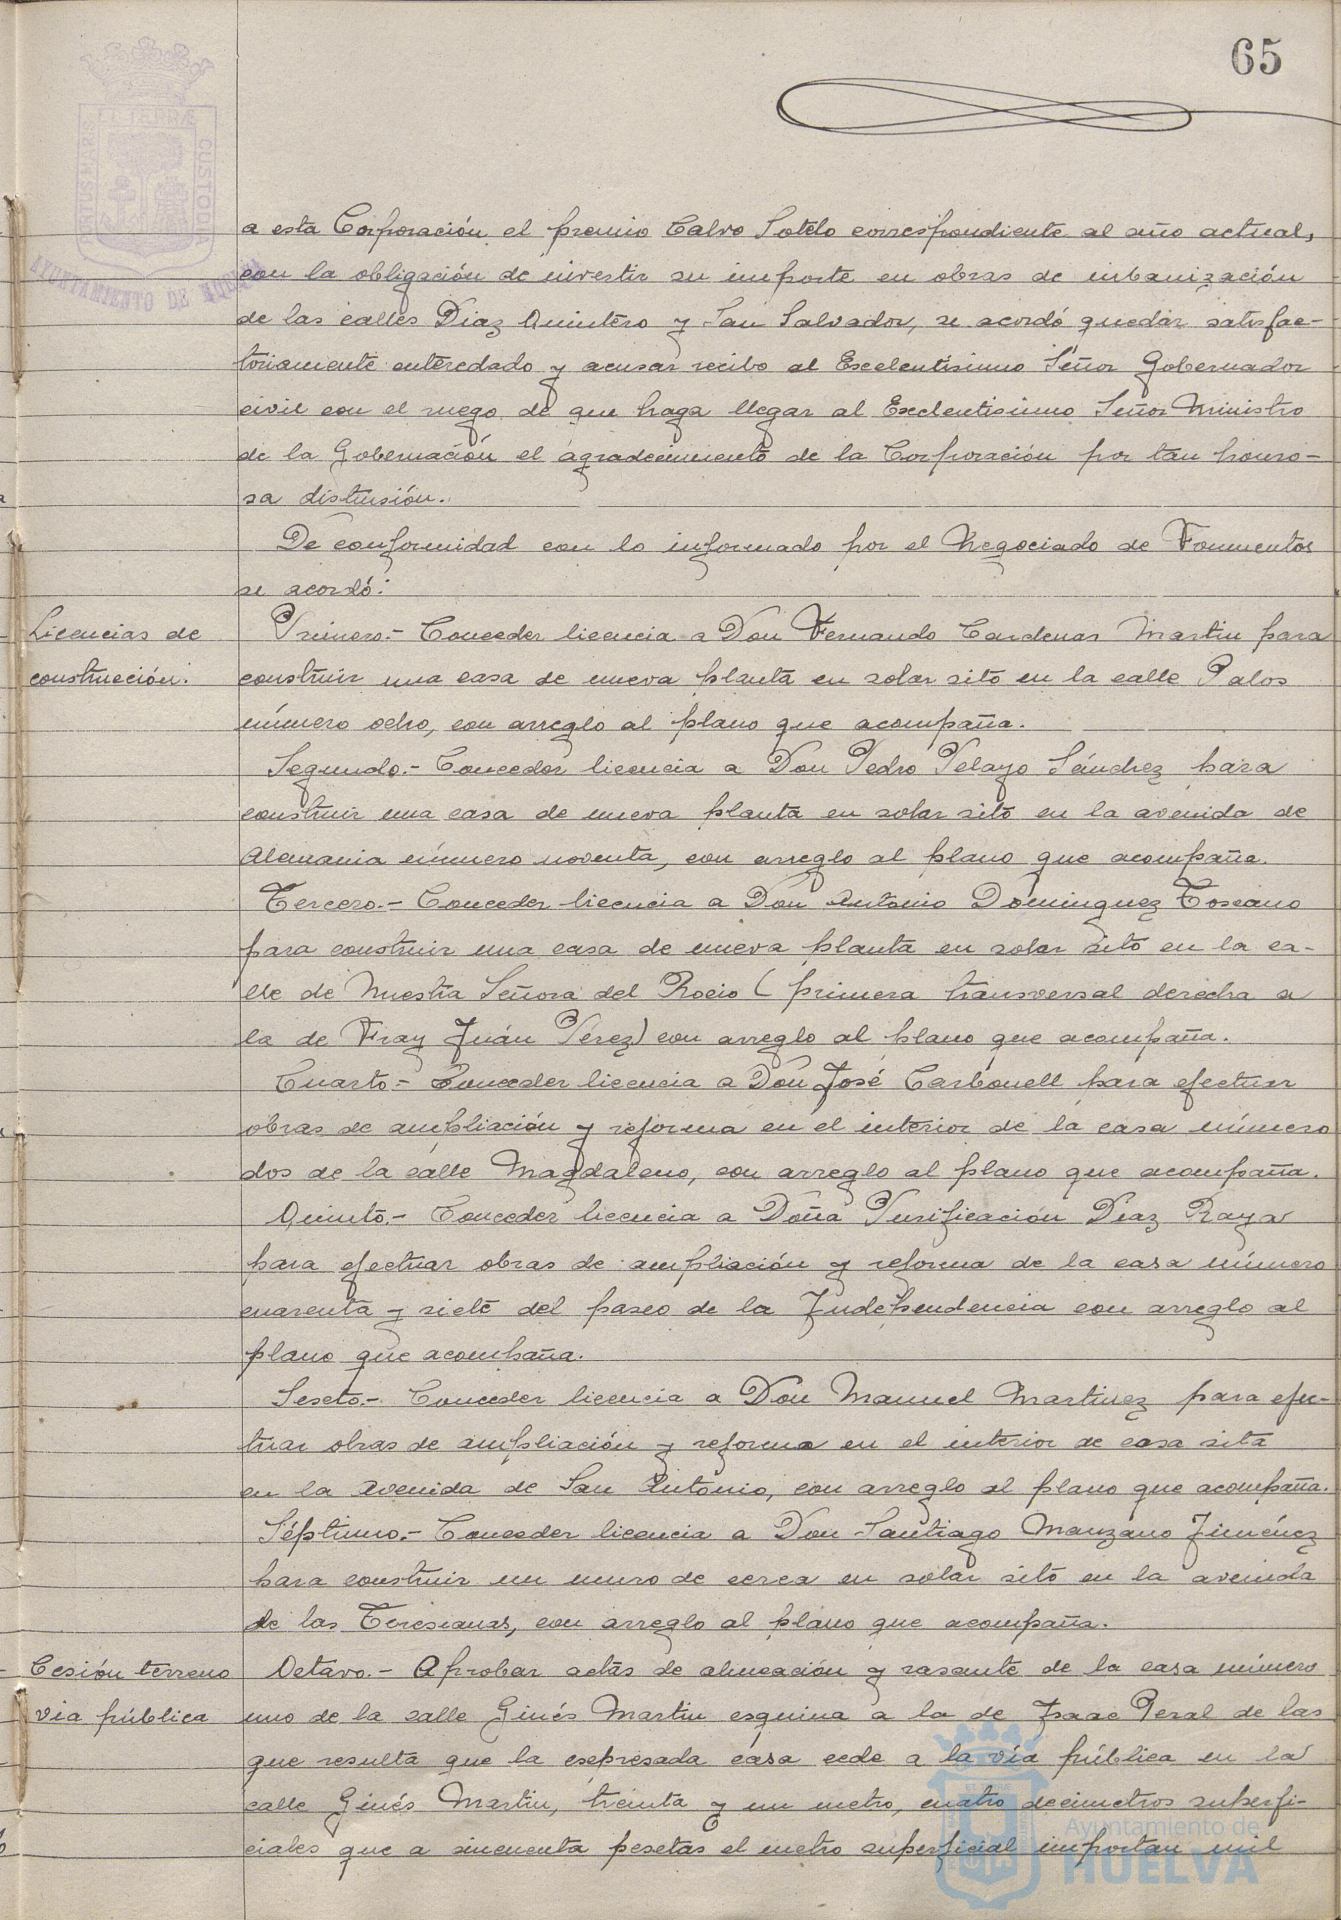 65
PORTUS MARIS
ET TERRÆ
CUSTODIA
AYUNTAMIENTO DE HUELVA
a esta Corporación el premio Calvo Sotelo correspondiente al año actual,
con la obligación de invertir su importe en obras de urbanización
de las calles Diaz Quintero y San Salvador, se acordó quedar satisfac-
toriamente enteredado y acusar recibo al Excelentísimo Señor Gobernador
civil con el ruego de que haga llegar al Exclentisimo Señor Ministro
de la Gobernación el agradecimiento de la Corporación por tan honro-
sa distinsión.
De conformidad con lo informado por el Negociado de Fomentos
se acordó:
Licencias de
construcción.
Primero.- Conceder licencia a Don Fernando Cardenas Martin para
construir una casa de nueva planta en solar sito en la calle Palos
número ocho, con arreglo al plano que acompaña.
Segundo.- Conceder licencia a Don Pedro Pelayo Sánchez para
construir una casa de nueva planta en solar sito en la avenida de
Alemania número noventa, con arreglo al plano que acompaña.
Tercero.- Conceder licencia a Don Antonio Dominguez Toscano
para construir una casa de nueva planta en solar sito en la ca-
lle de Nuestra Señora del Rocio ( primera transversal derecha a
la de Fray Juán Pérez) con arreglo al plano que acompaña.
Cuarto.- Conceder licencia a Don José Carbonell para efectuar
obras de ampliación y reforma en el interior de la casa número
dos de la calle Magdaleno, con arreglo al plano que acompaña.
Quinto.- Conceder licencia a Doña Purificación Díaz Raya
para efectuar obras de ampliación y reforma de la casa número
cuarenta y siete del paseo de la Independencia con arreglo al
plano que acompaña.
Sexto.- Conceder licencia a Don Manuel Martinez para efec-
tuar obras de ampliación y reforma en el interior de casa sita
en la Avenida de San Antonio, con arreglo al plano que acompaña.
Séptimo.- Conceder licencia a Don Santiago Manzano Jiménez
para construir un muro de cerca en solar sito en la avenida
de las Teresianas, con arreglo al plano que acompaña.
Cesión terreno
via pública
Octavo.- Aprobar actas de alineación y rasante de la casa número
uno de la calle Ginés Martin esquina a la de Isaac Peral de las
que resulta que la expresada casa cede a la vía pública en la
calle Ginés Martin, treinta y un metro, cuatro decimetros superfi-
ciales que a sincuenta pesetas el metro superficial importan mil
ET TERRÆ
Ayuntamiento de
HUELVA